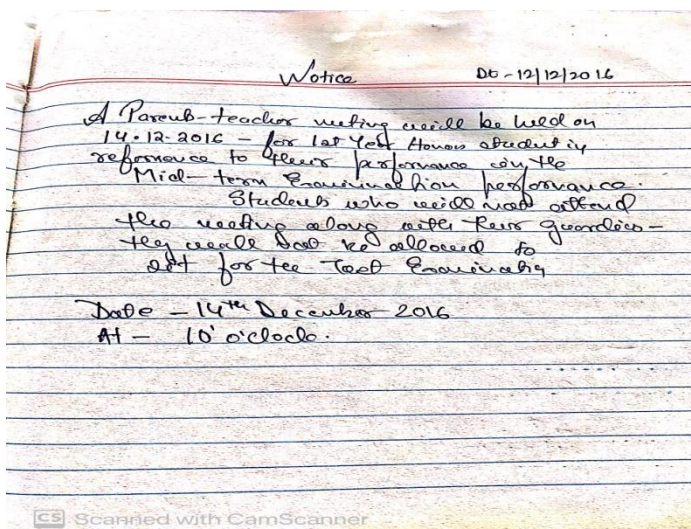 Notice Dt - 12/12/2016
A Parent-teacher meeting will be held on
14.12.2016 - for 1st Year Honors student in
reference to their performance in the
Mid-term Examination performance.
Students who will not attend
the meeting along with their guardian -
they will not be allowed to
sit for the Test Examination
Date - 14th December 2016
At - 10' o'clock.
CS Scanned with CamScanner